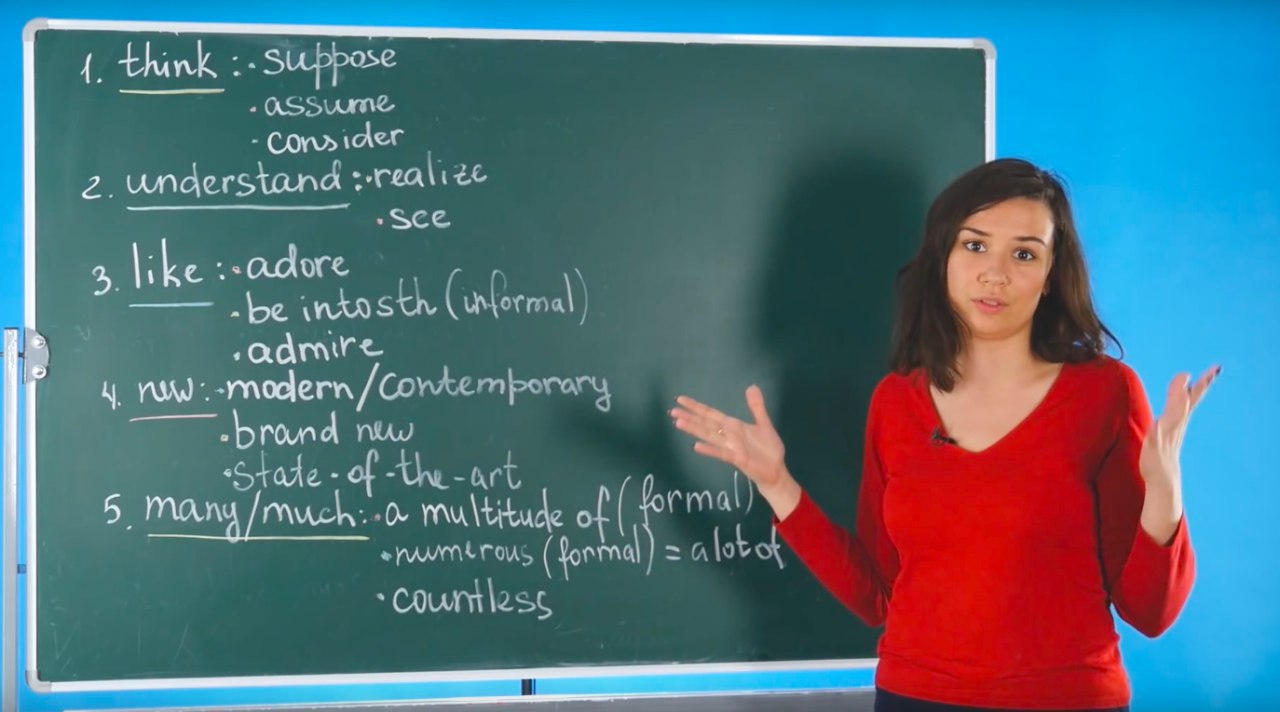 1. think: · suppose
· assume
· consider
2. understand: · realize
· see
3. like: · adore
· be into sth (informal)
· admire
4. new: · modern/contemporary
· brand new
· state-of-the-art
5. many/much: · a multitude of (formal)
· numerous (formal) = a lot of
· countless